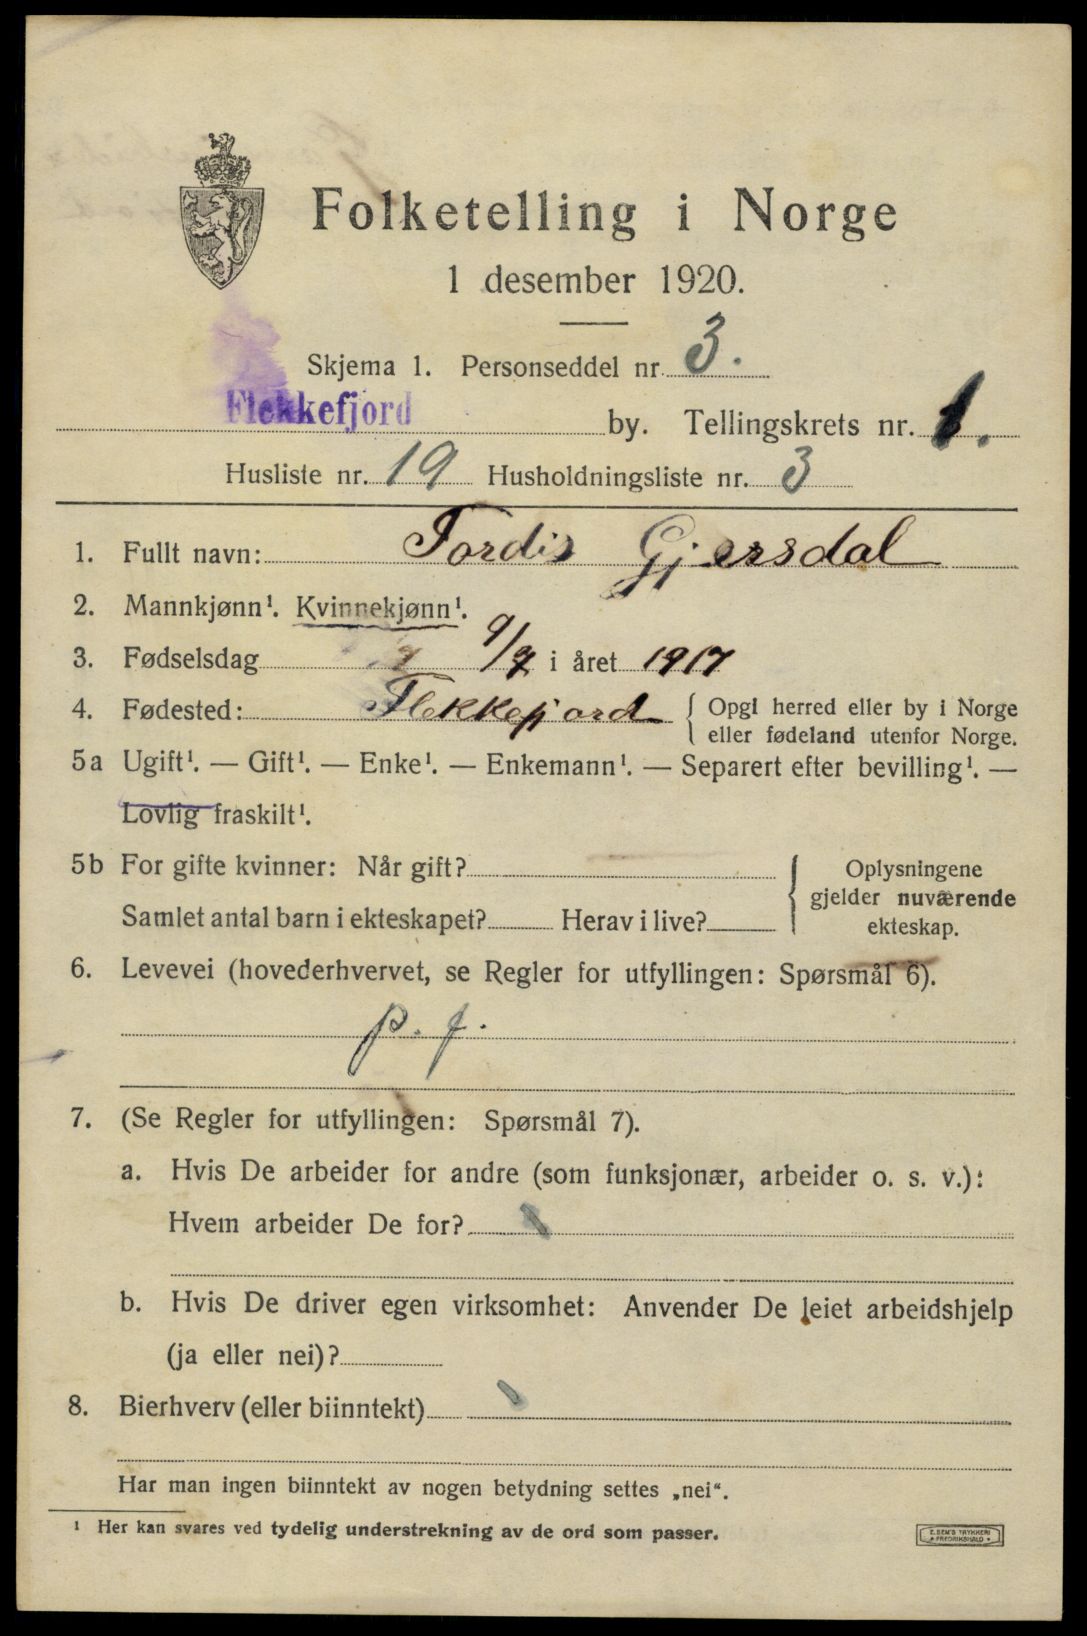 Folketelling i Norge
1 desember 1920.
Skjema 1. Personseddel nr. 3.
Flekkefjord by. Tellingskrets nr. 1.
Husliste nr. 19 Husholdningsliste nr. 3
1. Fullt navn: Tordis Gjersdal
2. Mannkjønn¹. Kvinnekjønn¹.
3. Fødselsdag 9/7 i året 1917
4. Fødested: Flekkefjord { Opgi herred eller by i Norge
eller fødeland utenfor Norge.
5a Ugift¹. — Gift¹. — Enke¹. — Enkemann¹. — Separert efter bevilling¹. —
Lovlig fraskilt¹.
5b For gifte kvinner: Når gift? { Oplysningene
gjelder nuværende
Samlet antal barn i ekteskapet? Herav i live?
ekteskap.
6. Levevei (hovederhvervet, se Regler for utfyllingen: Spørsmål 6).
p. f.
7. (Se Regler for utfyllingen: Spørsmål 7).
a. Hvis De arbeider for andre (som funksjonær, arbeider o. s. v.):
Hvem arbeider De for?
b. Hvis De driver egen virksomhet: Anvender De leiet arbeidshjelp
(ja eller nei)?
8. Bierhverv (eller biinntekt)
Har man ingen biinntekt av nogen betydning settes „nei“.
¹ Her kan svares ved tydelig understrekning av de ord som passer.
E. SEM'S TRYKKERI
• FREDRIKSHALD •